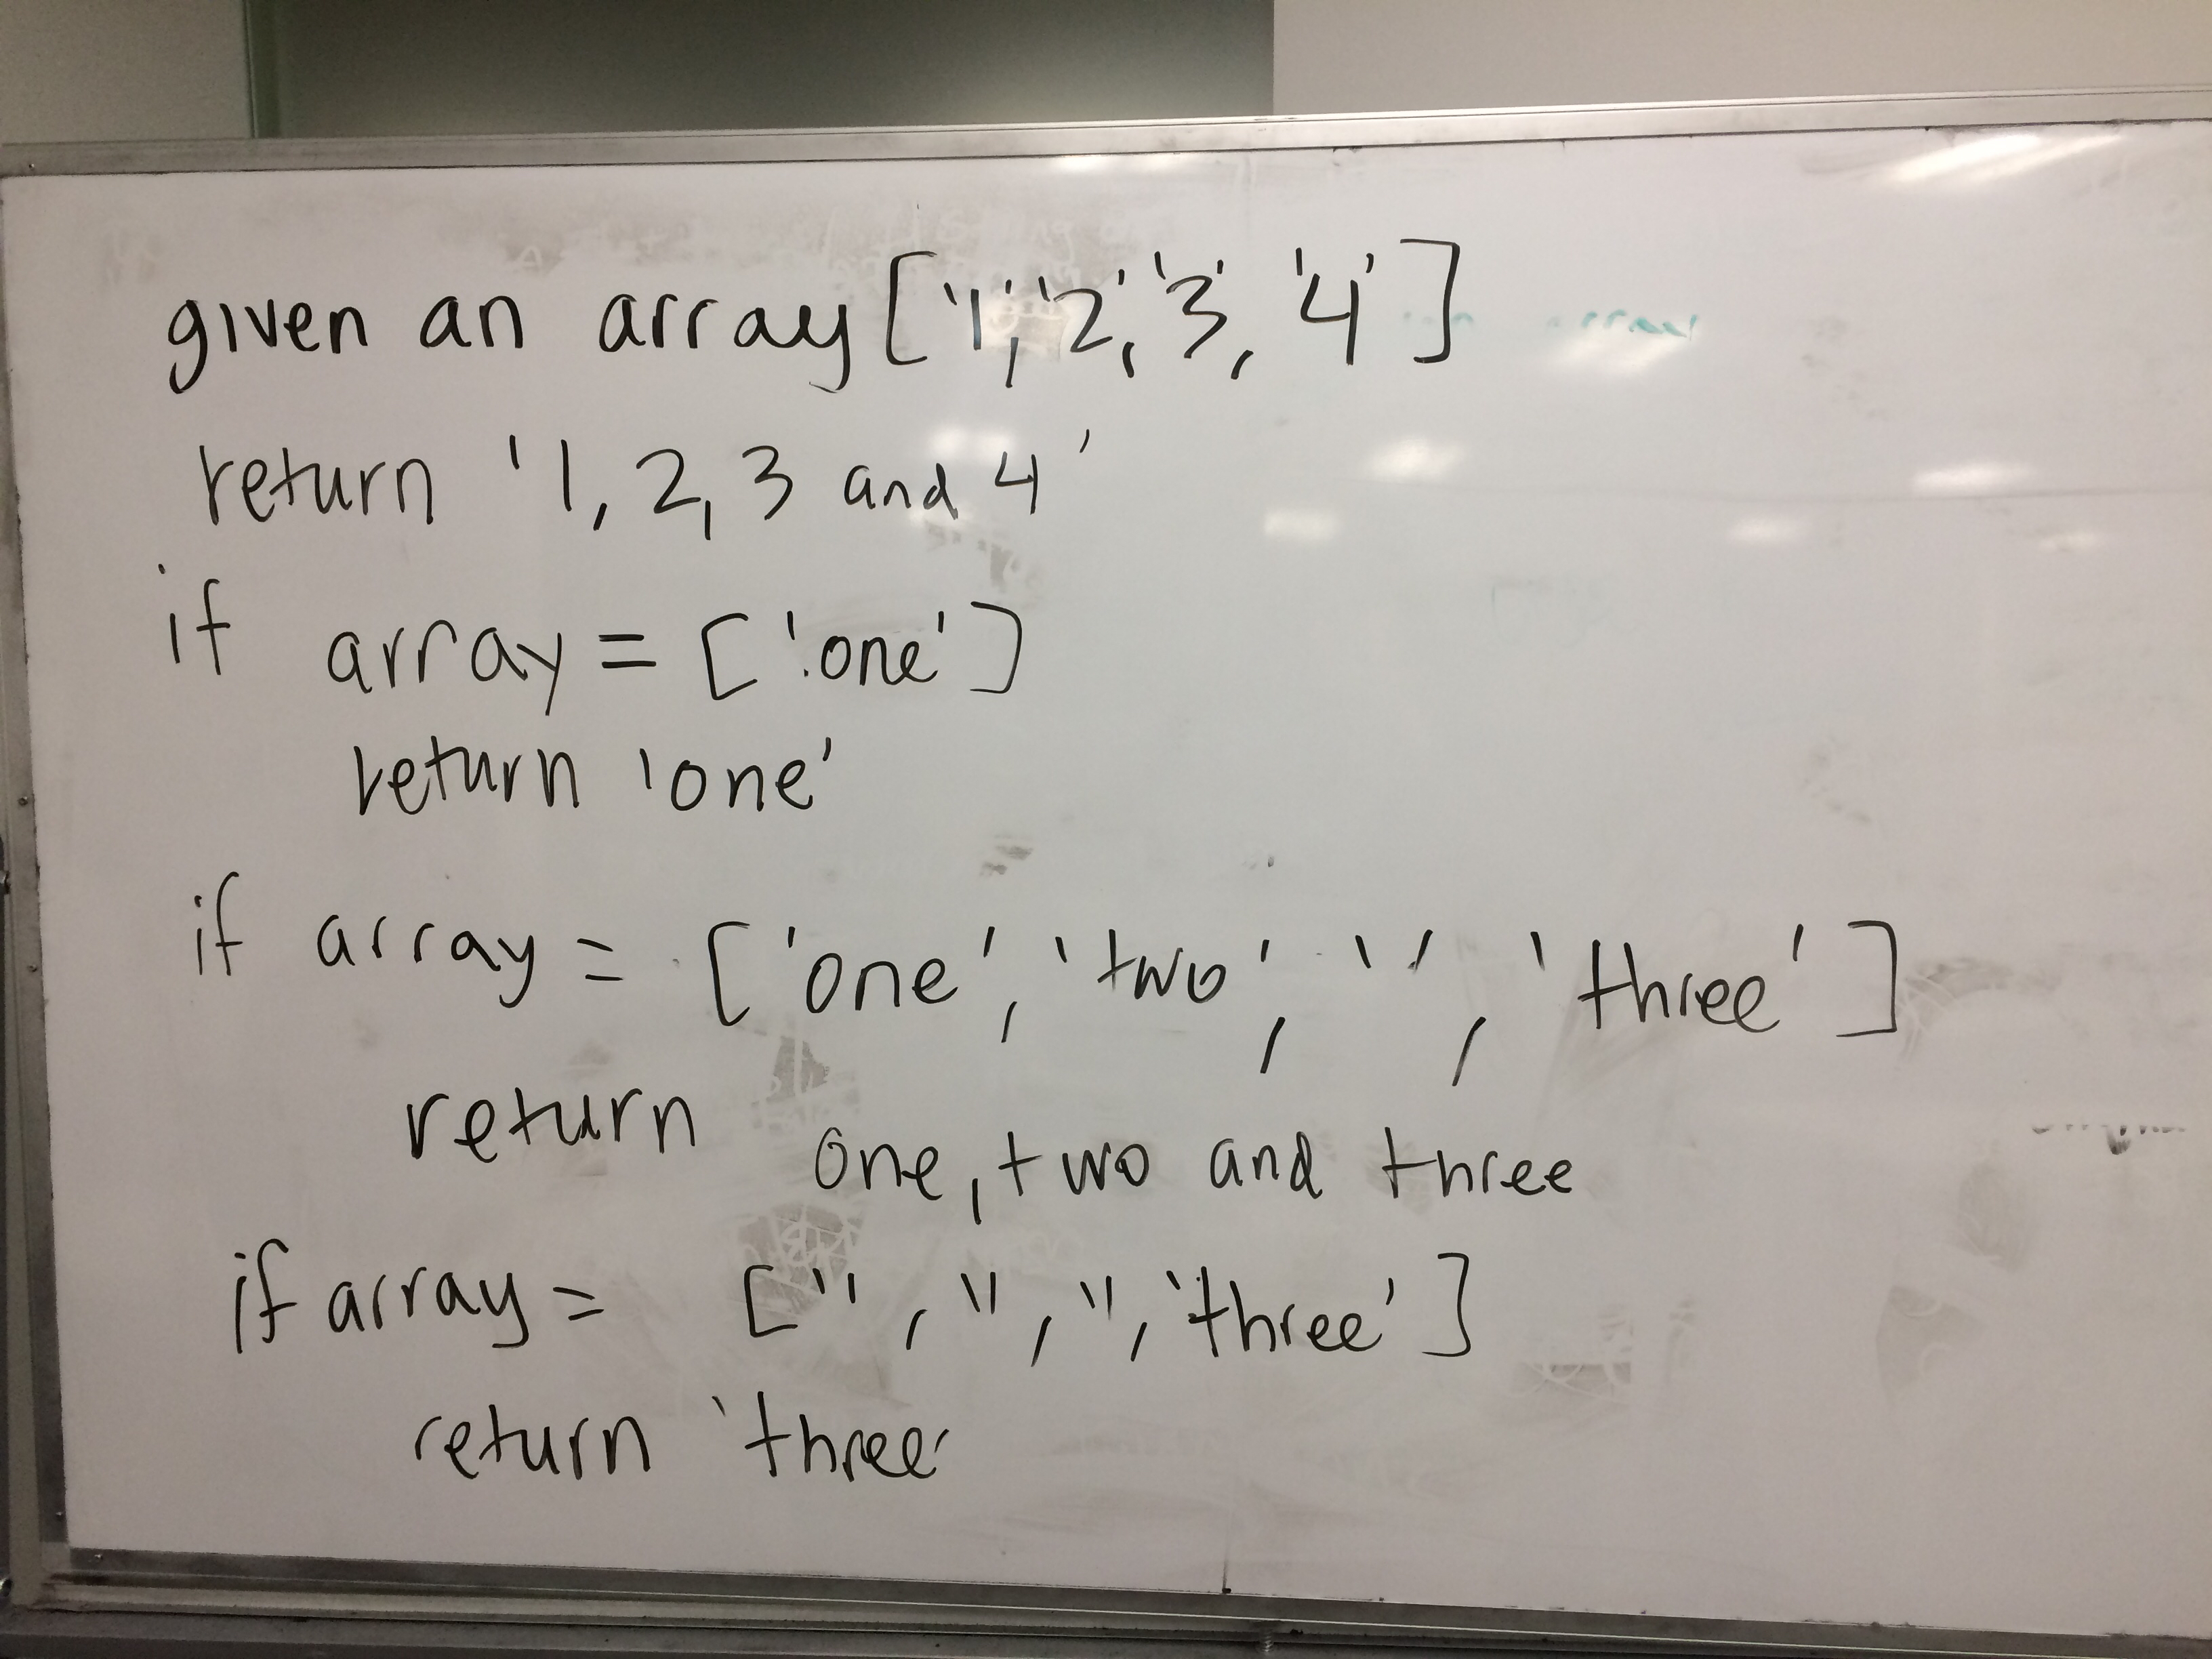 given an array ['1', '2', '3', '4']
return '1, 2, 3 and 4'
if array = ['one']
return 'one'
if array = ['one', 'two', '', 'three']
return one, two and three
if array = ['', '', '', 'three']
return 'three'